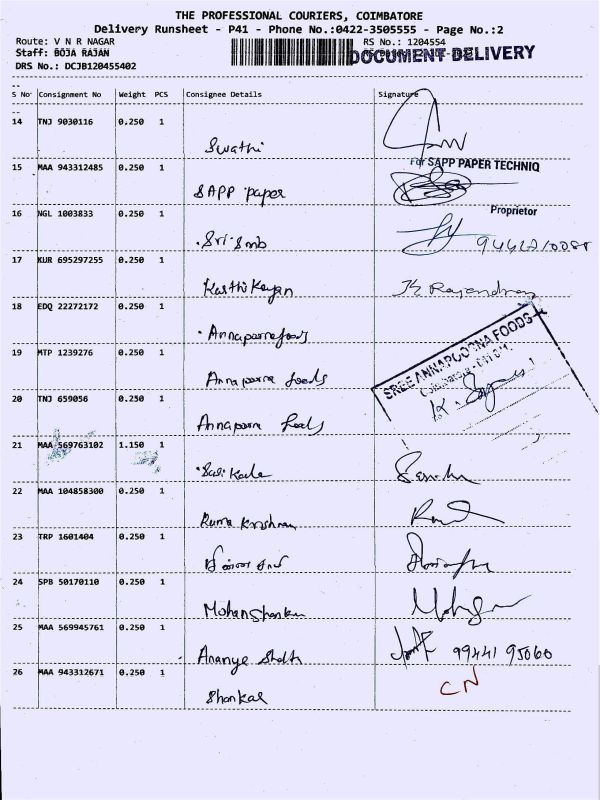 THE PROFESSIONAL COURIERS, COIMBATORE
Delivery Runsheet - P41 - Phone No.:0422-3505555 - Page No.:2
Route: V N R NAGAR
RS No.: 1204554
Staff: BOJA RAJAN
DOCUMENT DELIVERY
DRS No.: DCJB120455402
S No Consignment No Weight PCS Consignee Details Signature
14 TNJ 9030116 0.250 1
Swathi
15 MAA 943312485 0.250 1
For SAPP PAPER TECHNIQ
SAPP paper
Proprietor
16 NGL 1003833 0.250 1
Sri Smb
17 KUR 695297255 0.250 1
Karthi Keyan K Rajendran
18 EDQ 22272172 0.250 1
Annapoornafoods
19 MTP 1239276 0.250 1
SREE ANNAPOORNA FOODS
Annapoorna foods
20 TNJ 659056 0.250 1
Annapoorna foods
21 MAA 569763102 1.150 1
Sasi Kala
22 MAA 104858300 0.250 1
Rama Krishnan
23 TRP 1601404 0.250 1
24 SPB 50170110 0.250 1
Mohanshankar
25 MAA 569945761 0.250 1
Ananye Sheth 99441 95060
26 MAA 943312671 0.250 1
CN
Shankar